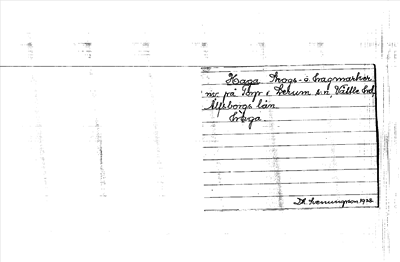 Haga Skogs- o. hagmarker
på Torp i Lerum s:n, Vättle hd,
Älfsborgs län.
Haga
1928